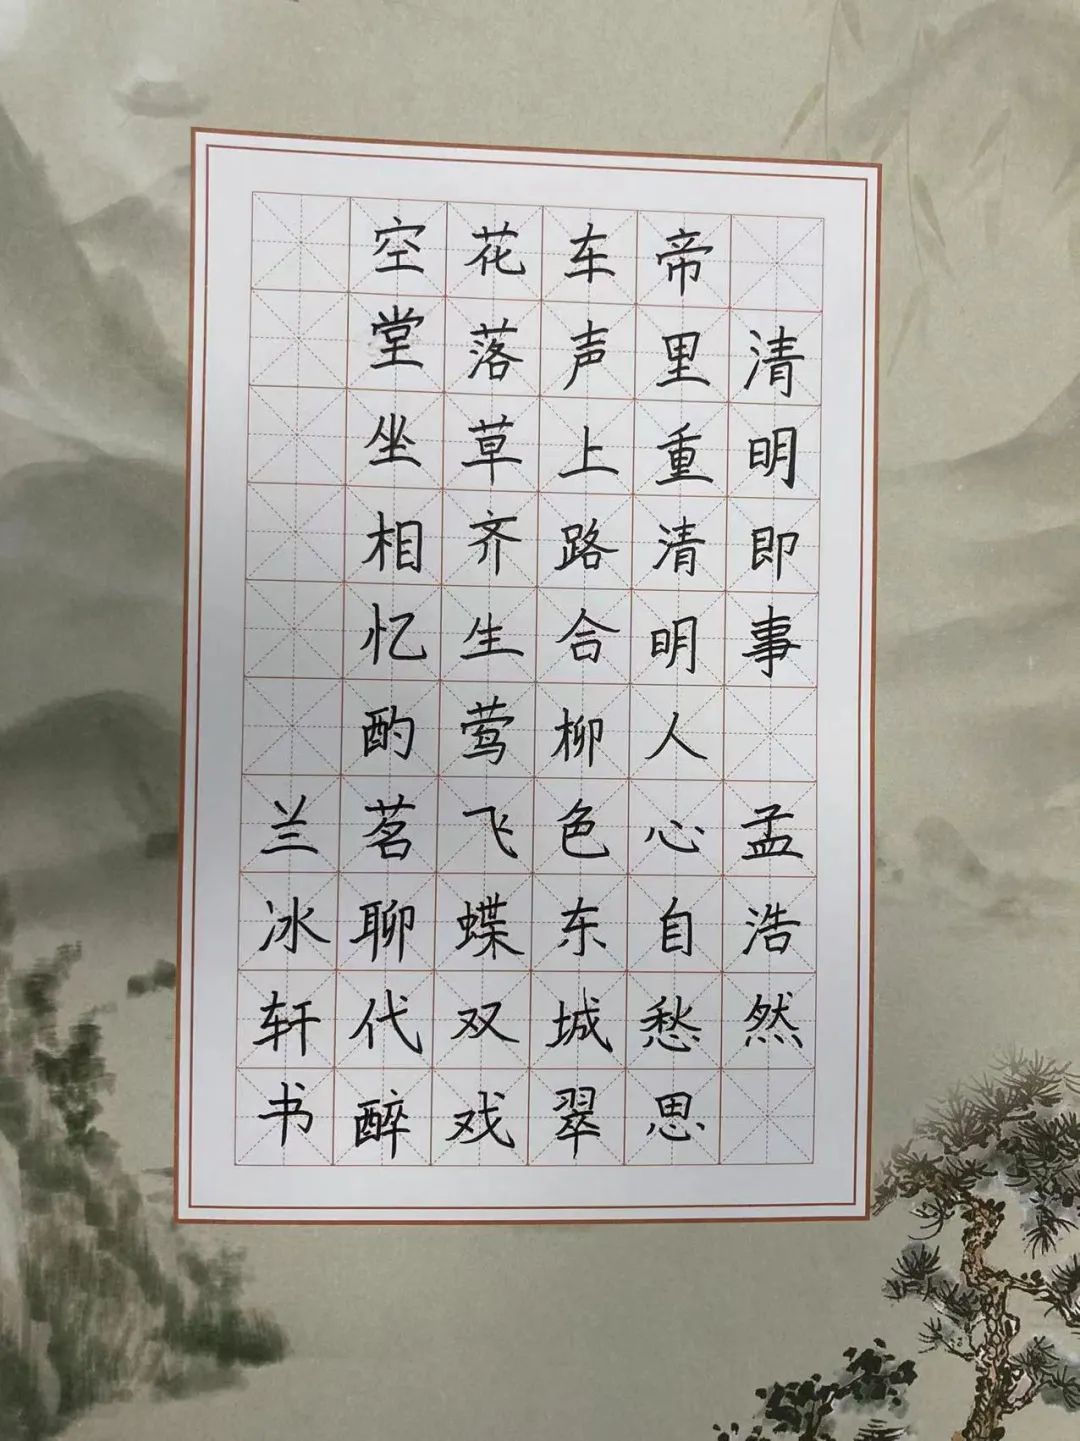 清明即事 孟浩然
帝里重清明人心自愁思
车声上路合柳色东城翠
花落草齐生莺飞蝶双戏
空堂坐相忆酌茗聊代醉
兰冰轩书